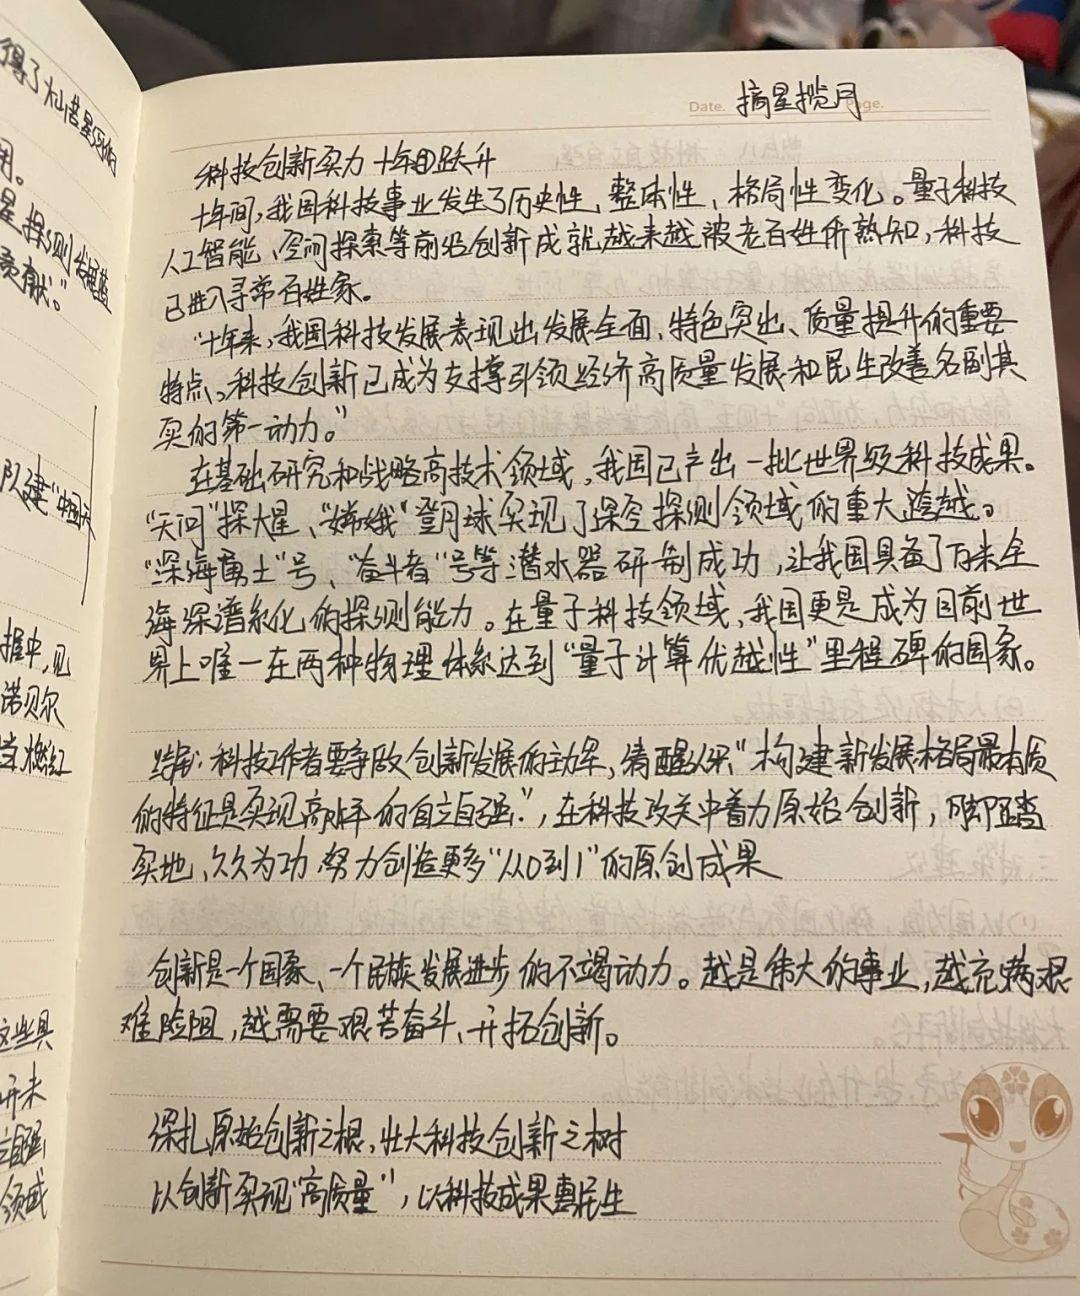 Date. 摘星揽月 Page.
科技创新实力 十年跃升
十年间,我国科技事业发生了历史性、整体性、格局性变化。量子科技
人工智能、空间探索等前沿创新成就越来越被老百姓所熟知,科技
已进入寻常百姓家。
"十年来,我国科技发展表现出发展全面、特色突出、质量提升的重要
特点。科技创新已成为支撑引领经济高质量发展和民生改善名副其
实的第一动力。"
在基础研究和战略高技术领域,我国已产出一批世界级科技成果。
"天问"探火星、"嫦娥"登月球实现了深空探测领域的重大跨越。
"深海勇士"号、"奋斗者"号等潜水器研制成功,让我国具备了万米全
海深谱系化的探测能力。在量子科技领域,我国更是成为目前世
界上唯一在两种物理体系达到"量子计算优越性"里程碑的国家。
科技工作者要争做创新发展的动车,清醒认识"构建新发展格局最本质
的特征是实现高水平的自立自强",在科技攻关中着力原始创新,脚踏
实地、久久为功,努力创造更多"从0到1"的原创成果
创新是一个国家、一个民族发展进步的不竭动力。越是伟大的事业,越充满艰
难险阻,越需要艰苦奋斗、开拓创新。
深扎原始创新之根,壮大科技创新之树
以创新实现"高质量",以科技成果惠民生
得了
用。
星探测
贡献。"
队建"中国天
握中,见
诺贝尔
这些具
开来
领域